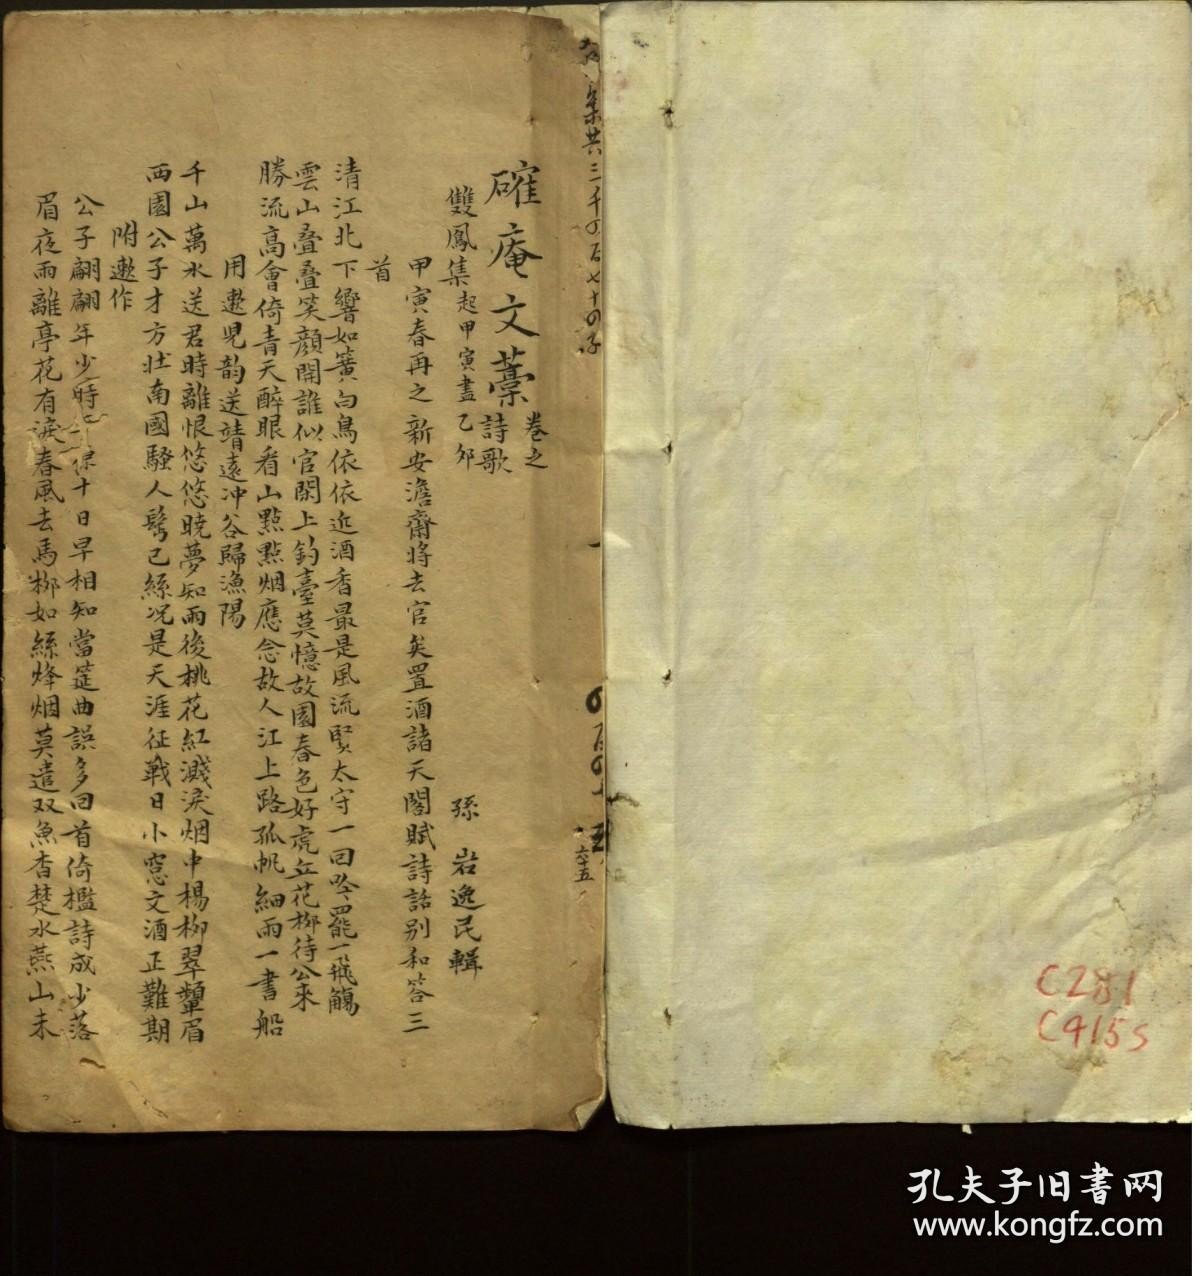 C281
C915S
集共三千〇百七十〇字
確庵文藁 詩歌 卷之
雙鳳集 起甲寅盡乙夘
孫 岩逸民輯
甲寅春再之新安澹齋將去官矣置酒諸天閣賦詩話别和答三
首
清江北下響如簧白鳥依依近酒香最是風流賢太守一回吟罷一飛觴
雲山叠叠笑顔開誰似官閑上釣臺莫憶故園春色好虎丘花柳待公來
勝流高會倚青天醉眼看山點點烟應念故人江上路孤帆細雨一書船
用遫児韵送靖遠冲谷歸漁陽
千山萬水送君時離恨悠悠曉夢知雨後桃花紅濺淚烟中楊柳翠顰眉
西園公子才方壯南國騷人鬂已絲况是天涯征戰日小窓文酒正難期
附遫作
公子翩翩年少時 十日早相知當筵曲誤多回首倚檻詩成少落
眉夜雨離亭花有淚春風去馬柳如絲烽烟莫遣双魚杳楚水燕山未
孔夫子旧書网
www.kongfz.com